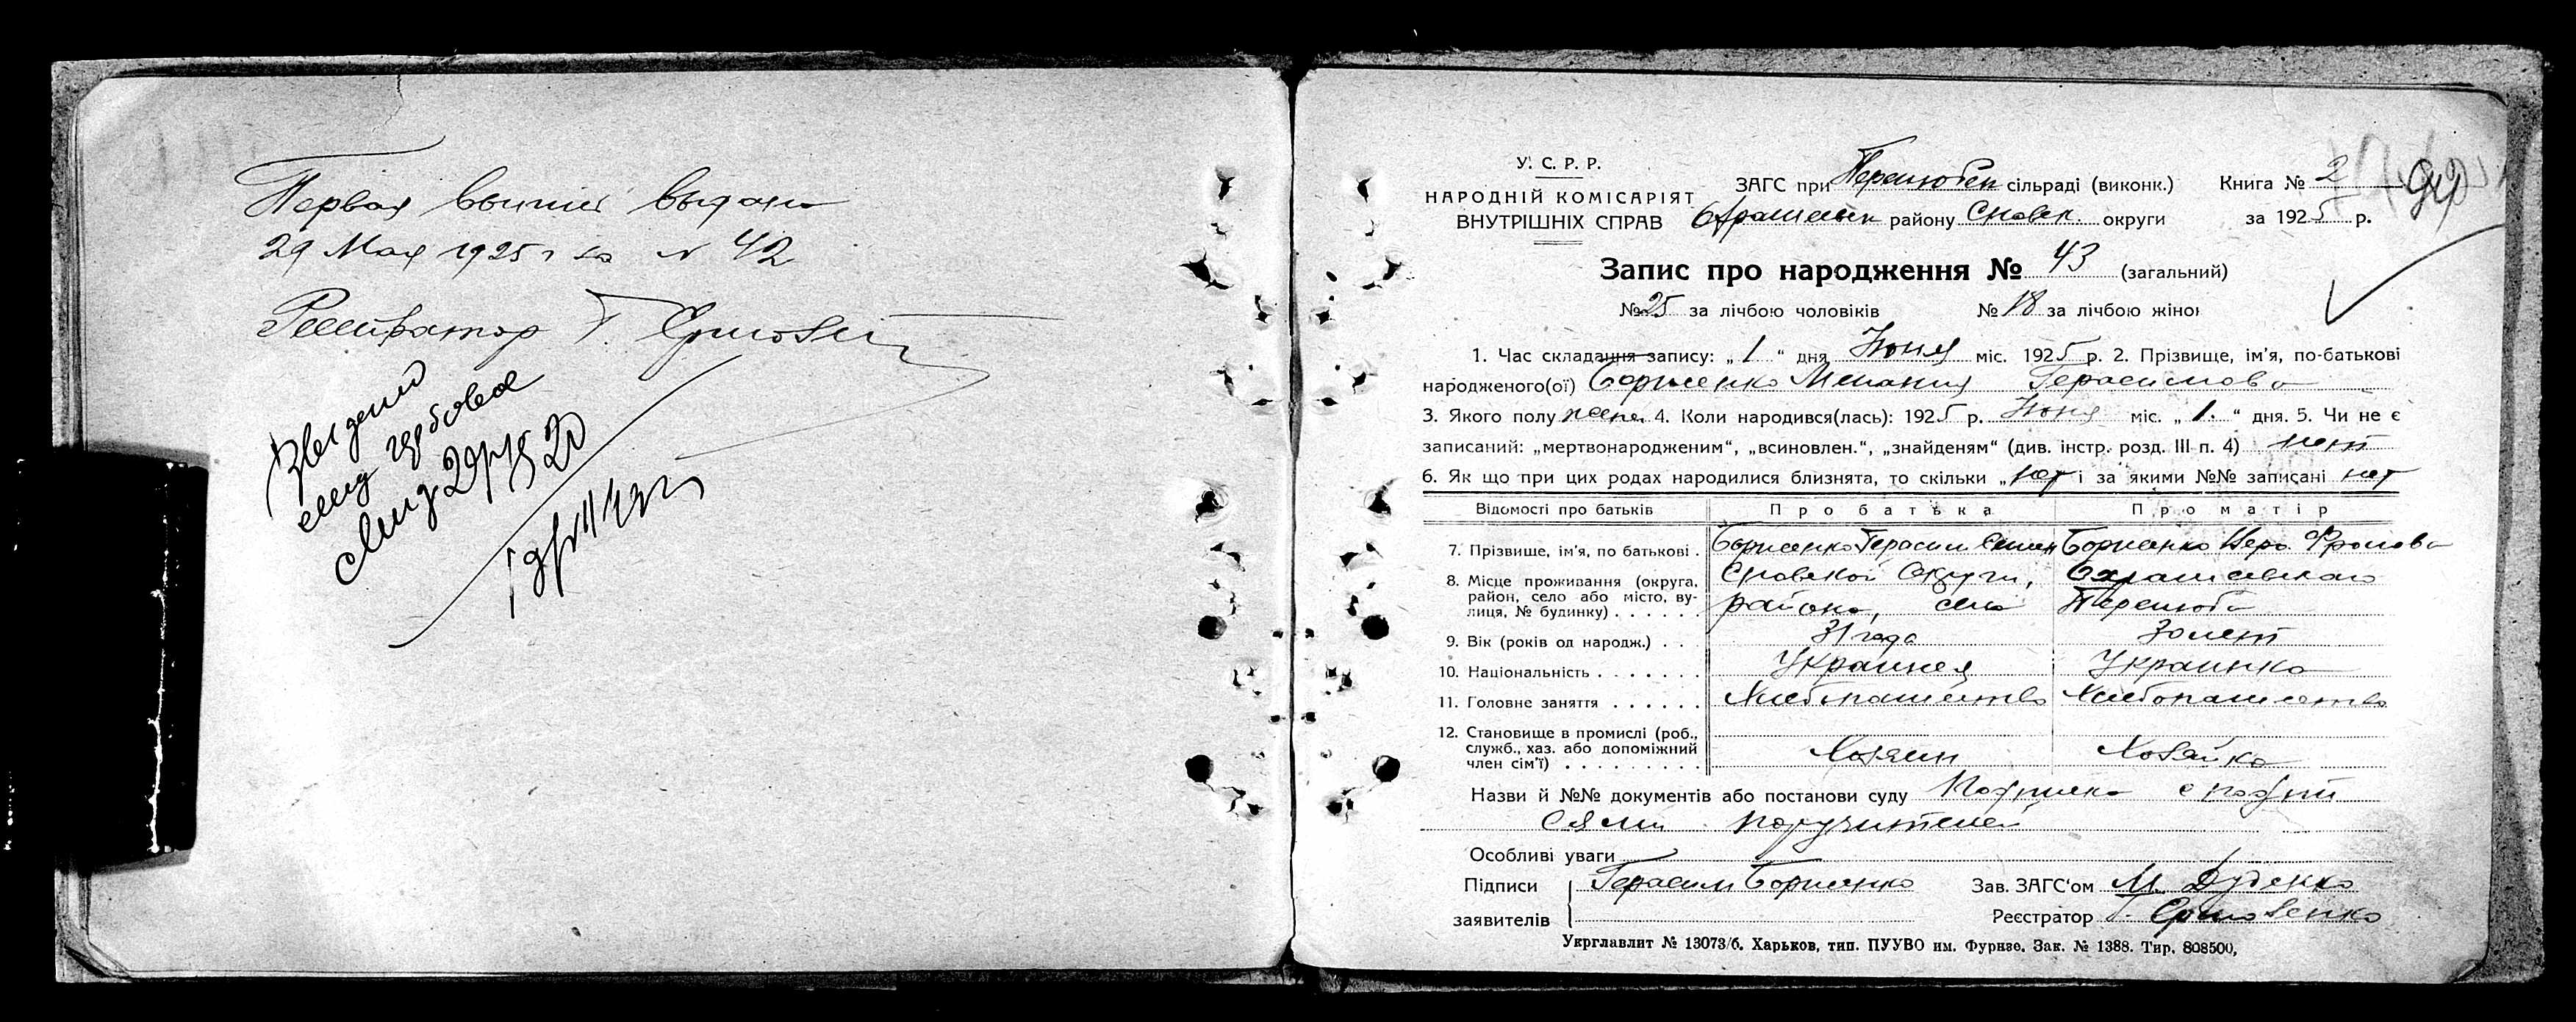 Первая выпись выдана
29 Мая 1925 г за № 42
Регистратор Г.
У. С. Р. Р.
НАРОДНІЙ КОМІСАРІЯТ
ВНУТРІШНІХ СПРАВ
ЗАГС при Перелюбск сільраді (виконк.) Книга № 2
району Сновск. округи за 1925 р.
Запис про народження № 43 (загальний)
№ 25 за лічбою чоловіків № 18 за лічбою жінок
1. Час складання запису: „ 1 “ дня Июня міс. 1925 р. 2. Прізвище, ім’я, по-батькові
народженого(ої) Борисенко Мелания Герасимова
3. Якого полу жен. 4. Коли народився(лась): 1925 р. Июня міс. „ 1. “ дня. 5. Чи не є
записаний: „мертвонародженим“, „всиновлен.“, „знайденям“ (див. інстр. розд. III п. 4) нет
6. Як що при цих родах народилися близнята, то скільки „ нет і за якими №№ записані нет
Відомості про батьків Про батька Про матір
7. Прізвище, ім’я, по батькові . Борисенко Герасим Борисенко Фролова
8. Місце проживання (округа, район, село або місто, вулиця, № будинку) . . . . . . Сновской Округи,
района, село Перелюба
9. Вік (років од народж.) . . . 31 года 30 лет
10. Національність . . . . . . . Украинец Украинка
11. Головне заняття . . . . . . Хлебопашество Хлебопашество
12. Становище в промислі (роб., служб., хаз. або допоміжний член сім’ї) . . . . . . . . . Хозяин Хозяйка
Назви й №№ документів або постанови суду Подписка с подпи
сями поручителей
Особливі уваги
Підписи Герасим Борисенко Зав. ЗАГС‘ом М. Дуденко
заявителів Реєстратор Г.
Укрглавлит № 13073/6. Харьков, тип. ПУУВО им. Фрунзе. Зак. № 1388. Тир. 808500,